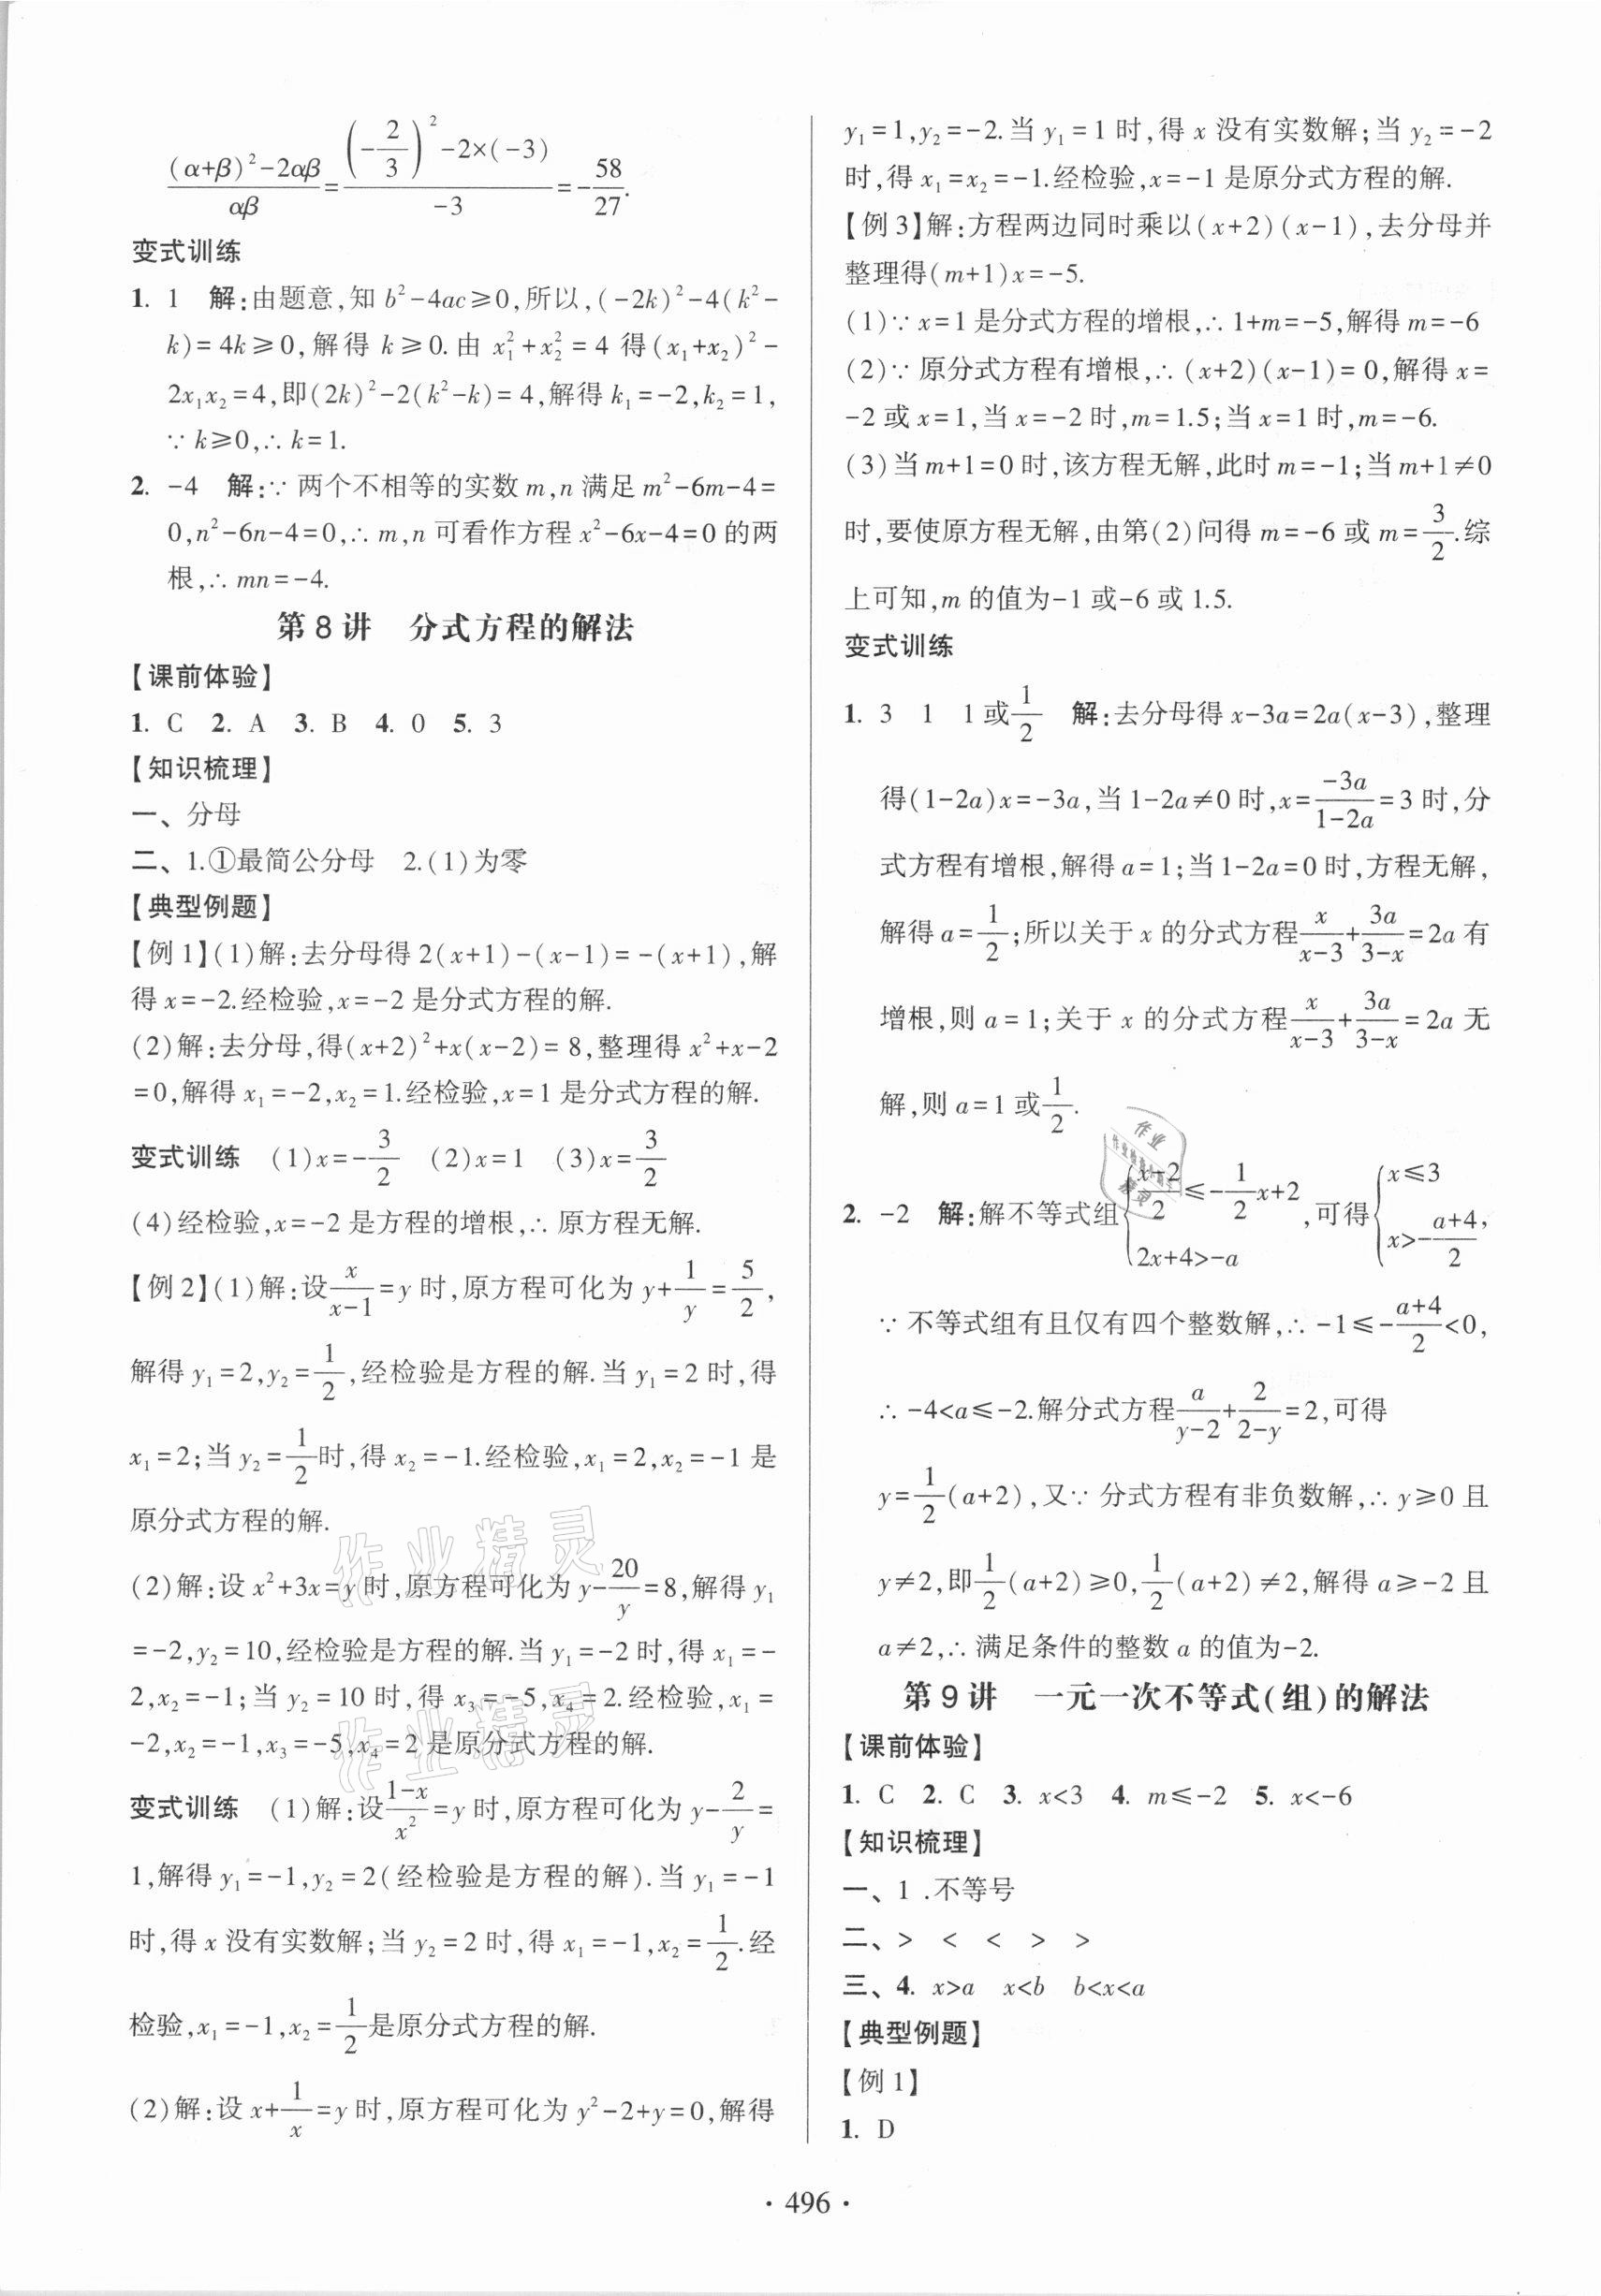 ((α+β)²-2αβ)/(αβ)=((-2/3)²-2×(-3))/(-3)=-58/27.
变式训练
1. 1 解:由题意,知 b²-4ac≥0,所以,(-2k)²-4(k²-
k)=4k≥0,解得 k≥0.由 x₁²+x₂²=4 得(x₁+x₂)²-
2x₁x₂=4,即(2k)²-2(k²-k)=4,解得 k₁=-2,k₂=1,
∵ k≥0,∴ k=1.
2. -4 解:∵ 两个不相等的实数 m,n 满足 m²-6m-4=
0,n²-6n-4=0,∴ m,n 可看作方程 x²-6x-4=0 的两
根,∴ mn=-4.
第 8 讲 分式方程的解法
【课前体验】
1. C 2. A 3. B 4. 0 5. 3
【知识梳理】
一、分母
二、1.①最简公分母 2.(1)为零
【典型例题】
【例 1】(1)解:去分母得 2(x+1)-(x-1)=-(x+1),解
得 x=-2.经检验,x=-2 是分式方程的解.
(2)解:去分母,得(x+2)²+x(x-2)=8,整理得 x²+x-2
=0,解得 x₁=-2,x₂=1.经检验,x=1 是分式方程的解.
变式训练 (1)x=-3/2 (2)x=1 (3)x=3/2
(4)经检验,x=-2 是方程的增根,∴ 原方程无解.
【例 2】(1)解:设x/(x-1)=y 时,原方程可化为 y+1/y=5/2,
解得 y₁=2,y₂=1/2,经检验是方程的解.当 y₁=2 时,得
x₁=2;当 y₂=1/2时,得 x₂=-1.经检验,x₁=2,x₂=-1 是
原分式方程的解.
(2)解:设 x²+3x=y 时,原方程可化为 y-20/y=8,解得 y₁
=-2,y₂=10,经检验是方程的解.当 y₁=-2 时,得 x₁=-
2,x₂=-1;当 y₂=10 时,得 x₃=-5,x₄=2.经检验,x₁=
-2,x₂=-1,x₃=-5,x₄=2 是原分式方程的解.
变式训练 (1)解:设(1-x)/x²=y 时,原方程可化为 y-2/y=
1,解得 y₁=-1,y₂=2(经检验是方程的解).当 y₁=-1
时,得 x 没有实数解;当 y₂=2 时,得 x₁=-1,x₂=1/2.经
检验,x₁=-1,x₂=1/2是原分式方程的解.
(2)解:设 x+1/x=y 时,原方程可化为 y²-2+y=0,解得
y₁=1,y₂=-2.当 y₁=1 时,得 x 没有实数解;当 y₂=-2
时,得 x₁=x₂=-1.经检验,x=-1 是原分式方程的解.
【例 3】解:方程两边同时乘以(x+2)(x-1),去分母并
整理得(m+1)x=-5.
(1)∵ x=1 是分式方程的增根,∴ 1+m=-5,解得 m=-6
(2)∵ 原分式方程有增根,∴ (x+2)(x-1)=0,解得 x=
-2 或 x=1,当 x=-2 时,m=1.5;当 x=1 时,m=-6.
(3)当 m+1=0 时,该方程无解,此时 m=-1;当 m+1≠0
时,要使原方程无解,由第(2)问得 m=-6 或 m=3/2.综
上可知,m 的值为-1 或-6 或 1.5.
变式训练
1. 3 1 1 或1/2 解:去分母得 x-3a=2a(x-3),整理
得(1-2a)x=-3a,当 1-2a≠0 时,x=(-3a)/(1-2a)=3 时,分
式方程有增根,解得 a=1;当 1-2a=0 时,方程无解,
解得 a=1/2;所以关于 x 的分式方程x/(x-3)+3a/(3-x)=2a 有
增根,则 a=1;关于 x 的分式方程x/(x-3)+3a/(3-x)=2a 无
解,则 a=1 或1/2.
2. -2 解:解不等式组{(x-2)/2≤-1/2x+2 2x+4>-a,可得{x≤3 x>-(a+4)/2,
∵ 不等式组有且仅有四个整数解,∴ -1≤-(a+4)/2<0,
∴ -4<a≤-2.解分式方程a/(y-2)+2/(2-y)=2,可得
y=1/2(a+2),又∵ 分式方程有非负数解,∴ y≥0 且
y≠2,即1/2(a+2)≥0,1/2(a+2)≠2,解得 a≥-2 且
a≠2,∴ 满足条件的整数 a 的值为-2.
第 9 讲 一元一次不等式(组)的解法
【课前体验】
1. C 2. C 3. x<3 4. m≤-2 5. x<-6
【知识梳理】
一、1 .不等号
二、> < < > >
三、4. x>a x<b b<x<a
【典型例题】
【例 1】
1. D
· 496 ·
作业精灵
作业精灵